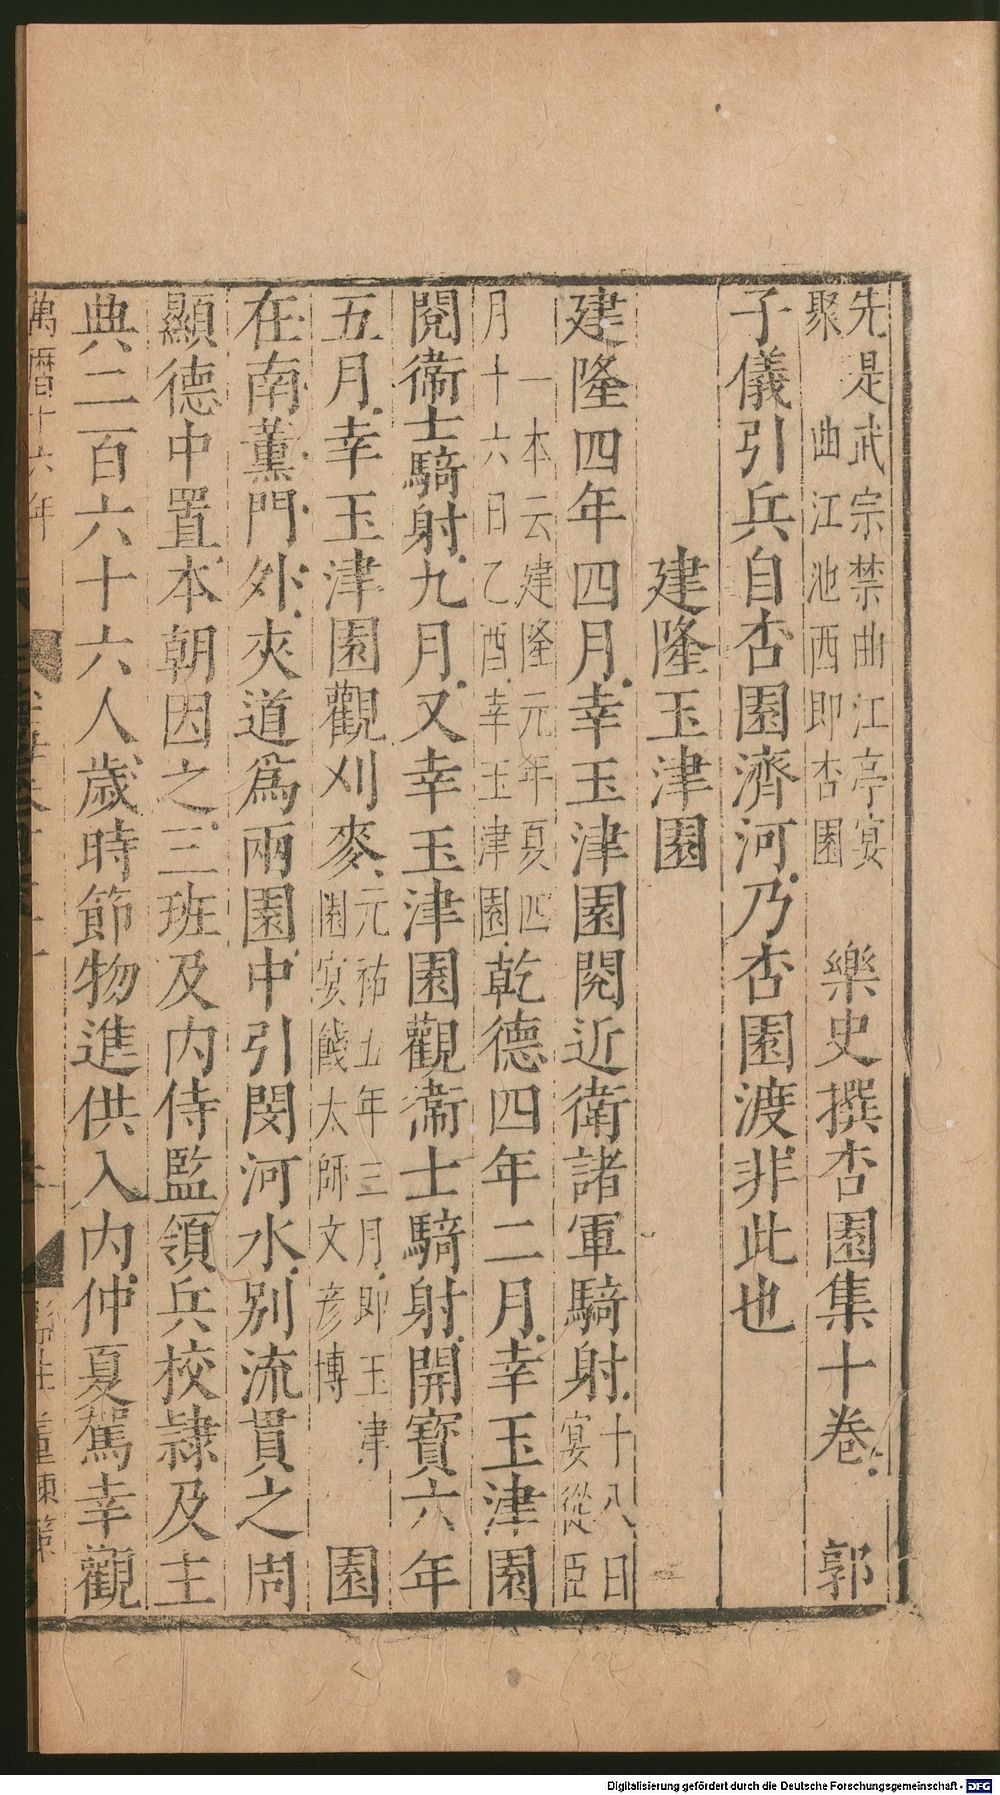 先是武宗禁曲江亭宴
聚　曲江池西即杏園
樂史撰杏園集十卷　郭
子儀引兵自杏園濟河乃杏園渡非此也
建隆玉津園
建隆四年四月幸玉津園閱近衛諸軍騎射
十八日
宴從臣
一本云建隆元年夏四
月十六日乙酉幸玉津園
乾德四年二月幸玉津園
閱衞士騎射九月又幸玉津園觀衞士騎射開寶六年
五月幸玉津園觀刈麥
元祐五年三月即玉津
園宴餞太師文彥博
園
在南薰門外夾道爲兩園中引閔河水别流貫之周
顯德中置本朝因之三班及内侍監領兵校隷及主
典二百六十六人歲時節物進供入内仲夏駕幸觀
萬曆十六年